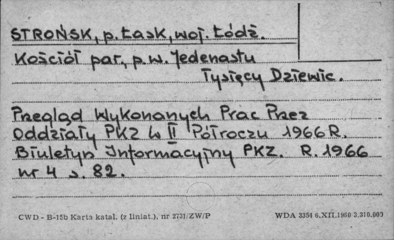 STROŃSK, p. Łask, woj. Łódź.
Kościół par, p.w. Jedenastu
Tysięcy Dziewic.
Przegląd Wykonanych Prac Przez
Oddziały PKZ w II Półroczu 1966 R.
Biuletyn Informacyjny PKZ. R. 1966
nr 4 s. 82.
CWD - B-15b Karta katal. (z liniat.), nr 2731/ZW/P WDA 3334 6.XII.1960 2.210.000